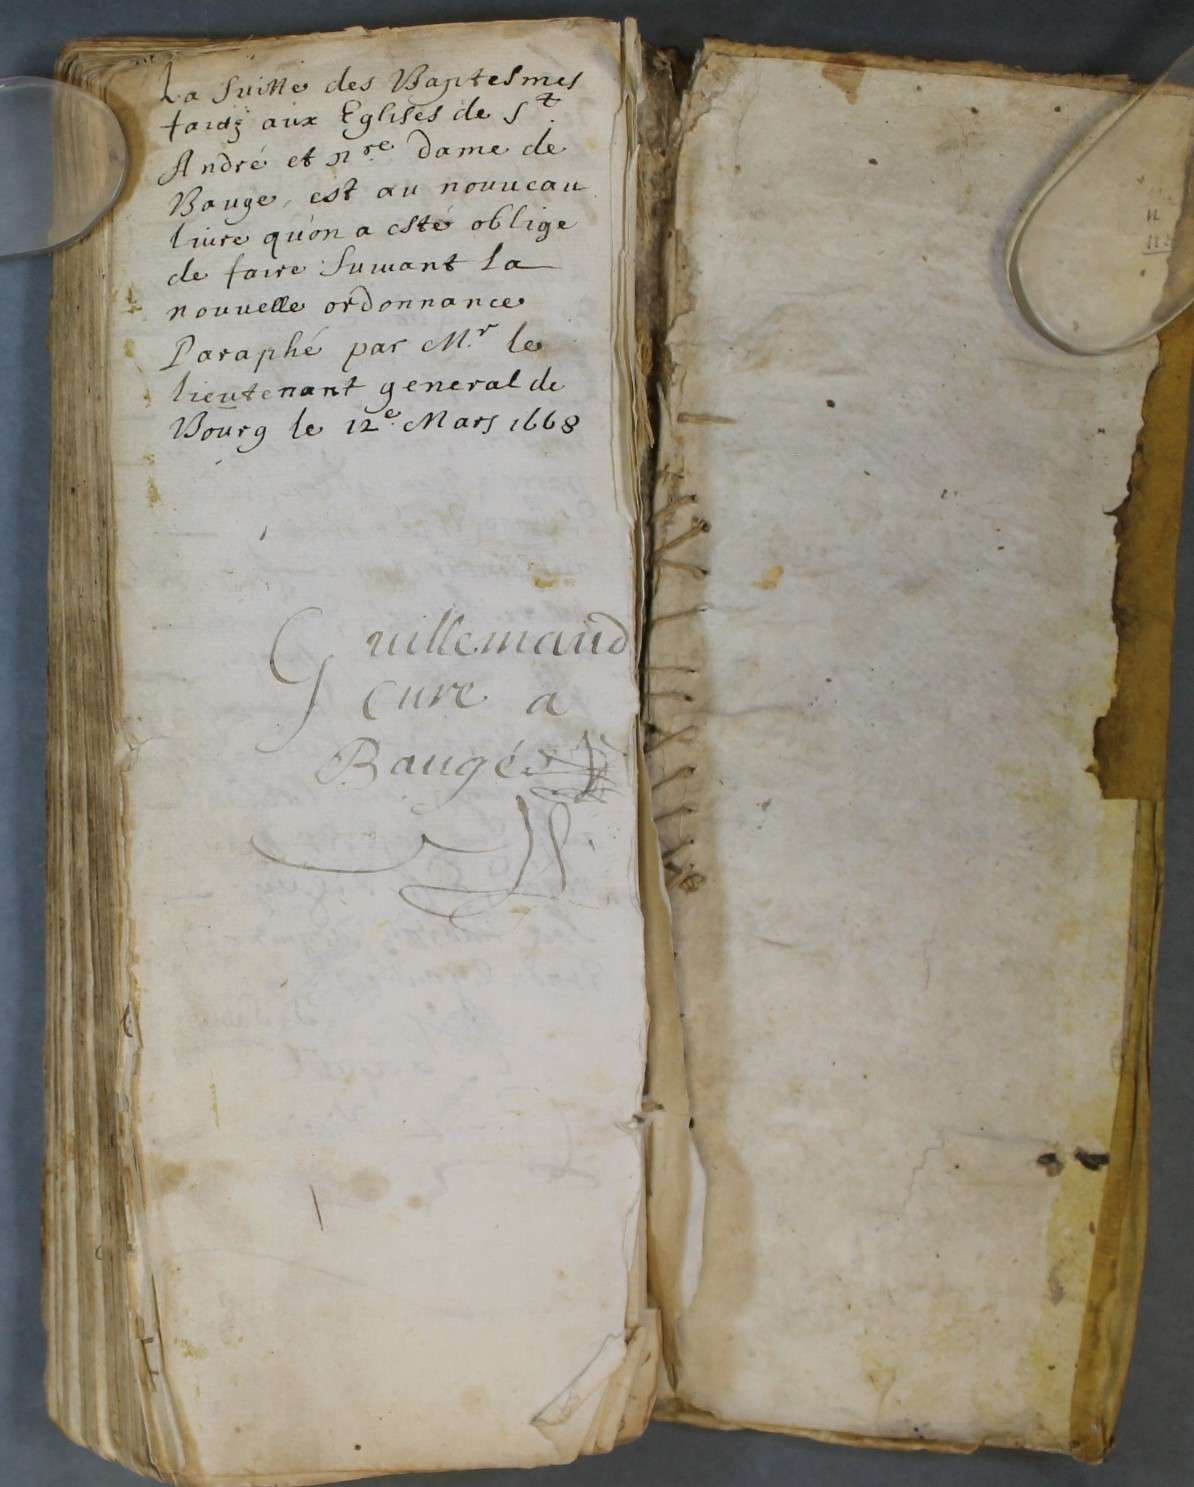 La Suitte des Baptesmes
faictz aux Eglises de S.t
André et nre dame de
Bauge, est au nouueau
liure qu'on a esté oblige
de faire Suiuant la
nouuelle ordonnance
Paraphé par M.r le
lieutenant general de
Bourg le 12e Mars 1668
Guillemaud
cure a
Baugé